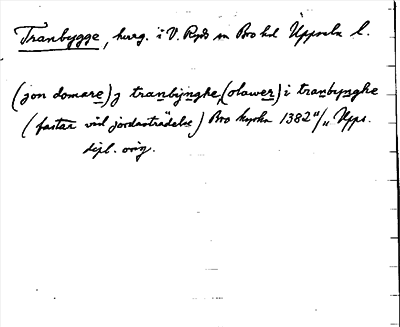 Tranbygge, herrg. i V. Ryds sn Bro hd Uppsala l.
(jon domare) j tranbijnghe, (olawer) i tranbynghe
(fastar vid jordaträdelse) Bro kyrka 1382 4/11 Upps.
dipl. orig.